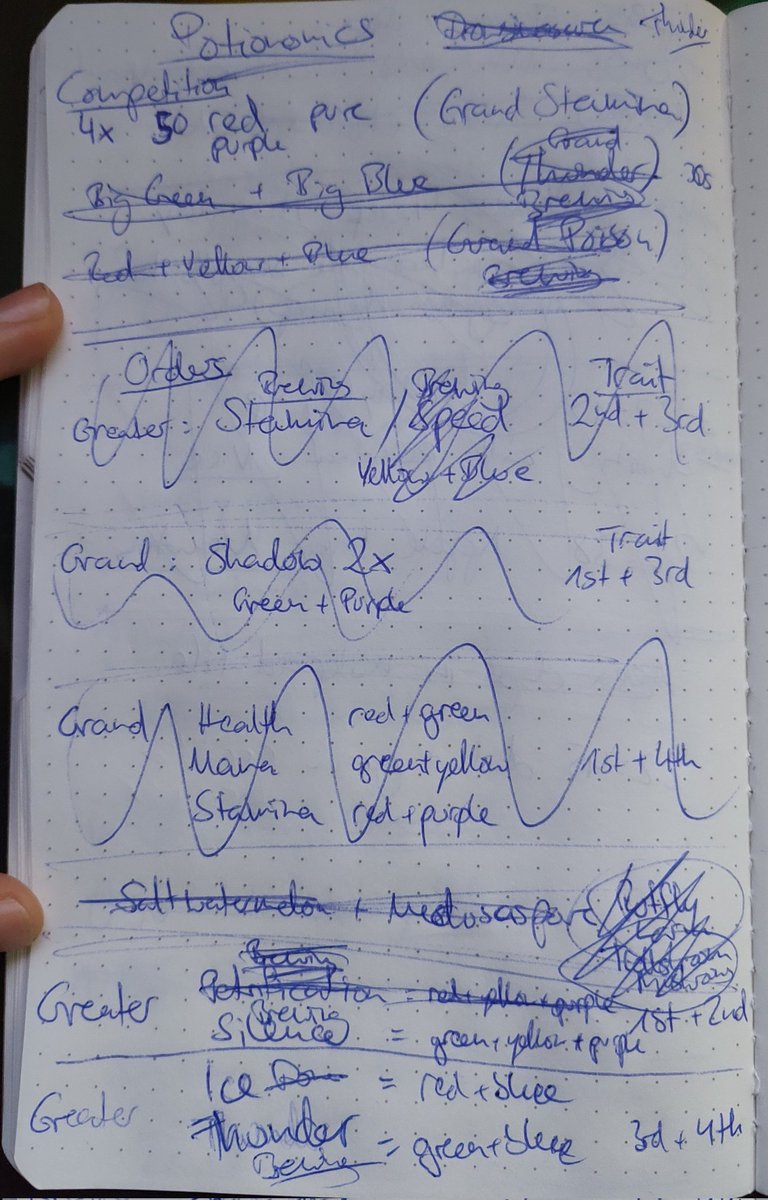 Potionomics
Competition
4x 50 red pure (Grand Stamina)
purple
Grand
Big Green + Big Blue (Thunder)
Brewing
Red + Yellow + Blue (Grand Poison)
Brewing
Orders
Brewing Brewing Trait
Greater: Stamina / Speed 2nd + 3rd
Yellow + Blue
Trait
Grand: Shadow 2x 1st + 3rd
Green + Purple
Grand Health red + green
Mana green + yellow 1st + 4th
Stamina red + purple
Saltwatermelon +
Brewing
Greater Petrification = red + yellow + purple 1st + 2nd
Brewing
Silence = green + yellow + purple
Ice = red + blue
Greater Thunder = green + blue 3d + 4th
Brewing